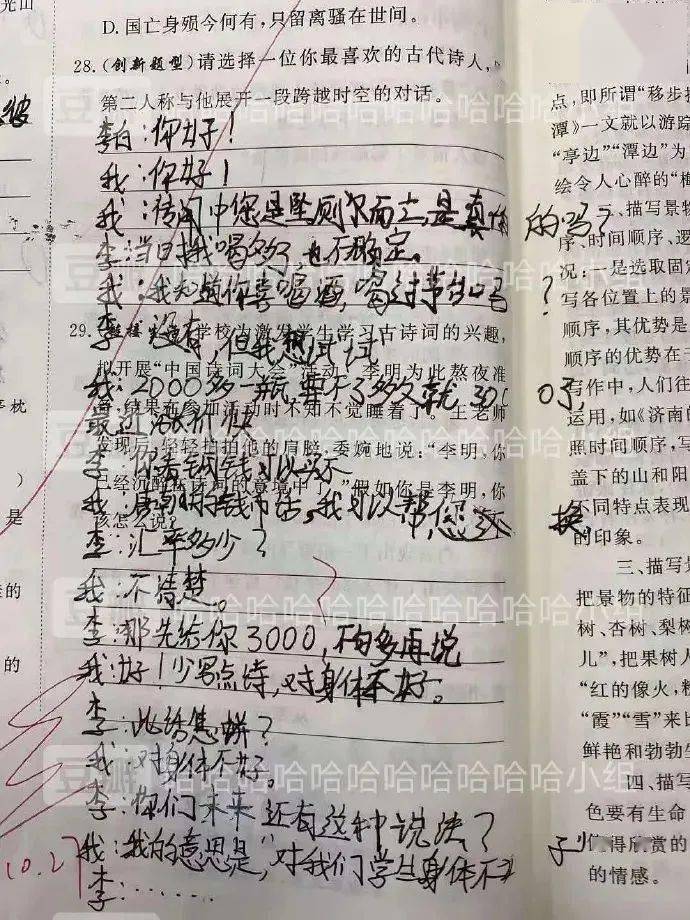 光山
D. 国亡身殒今何有,只留离骚在世间。
28. (创新题型)请选择一位你最喜欢的古代诗人,
第二人称与他展开一段跨越时空的对话。
李白:你好!
我:你好!
我:传闻中您是坠厕尔而亡,是真的的吗?
李:当日我喝多了,也不确定。
我:我知道你喜喝酒,喝过茅台吗?
李:没有,但我想试试
29. 学校为激发学生学习古诗词的兴趣,
拟开展“中国诗词大会”活动,李明为此熬夜准
我:2000多一瓶,要不了多久就3000了,
备,结果在参加活动时不知不觉睡着了。王老师
最近涨价快
发现后,轻轻拍拍他的肩膀,委婉地说:“李明,你
李:你看铜钱可以不
已经沉醉在诗词的意境中了。”假如你是李明,你
我:唐朝的钱币活,我可以帮您 换。
该怎么说?
李:汇率多少?
我:不清楚。
李:那先给你3000,不白多再说
我:好!少写点诗,对身体不好。
李:此话怎讲?
我:对身体不好。
李:你们未来还有这种说法?
我:我的意思是“对我们学生身体不好”
李:……
10.27
彼
。
枕
)
是
的
的
点,即所谓“移步换
潭》一文就以游踪
“亭边”“潭边”为
绘令人心醉的“梅
二、描写景物
序、时间顺序、逻
况:一是选取固定
写各位置上的景
顺序,其优势是
顺序的优势在于
写作中,人们往
运用,如《济南的
照时间顺序,写
盖下的山和阳
不同特点表现
的印象。
三、描写景
把景物的特征
树、杏树、梨树
儿”,把果树人
“红的像火,粉
“霞”“雪”来比
鲜艳和勃勃生
四、描写
色要有生命
得欣赏的
的情感。
豆瓣 哈哈哈哈哈哈哈哈哈哈小组